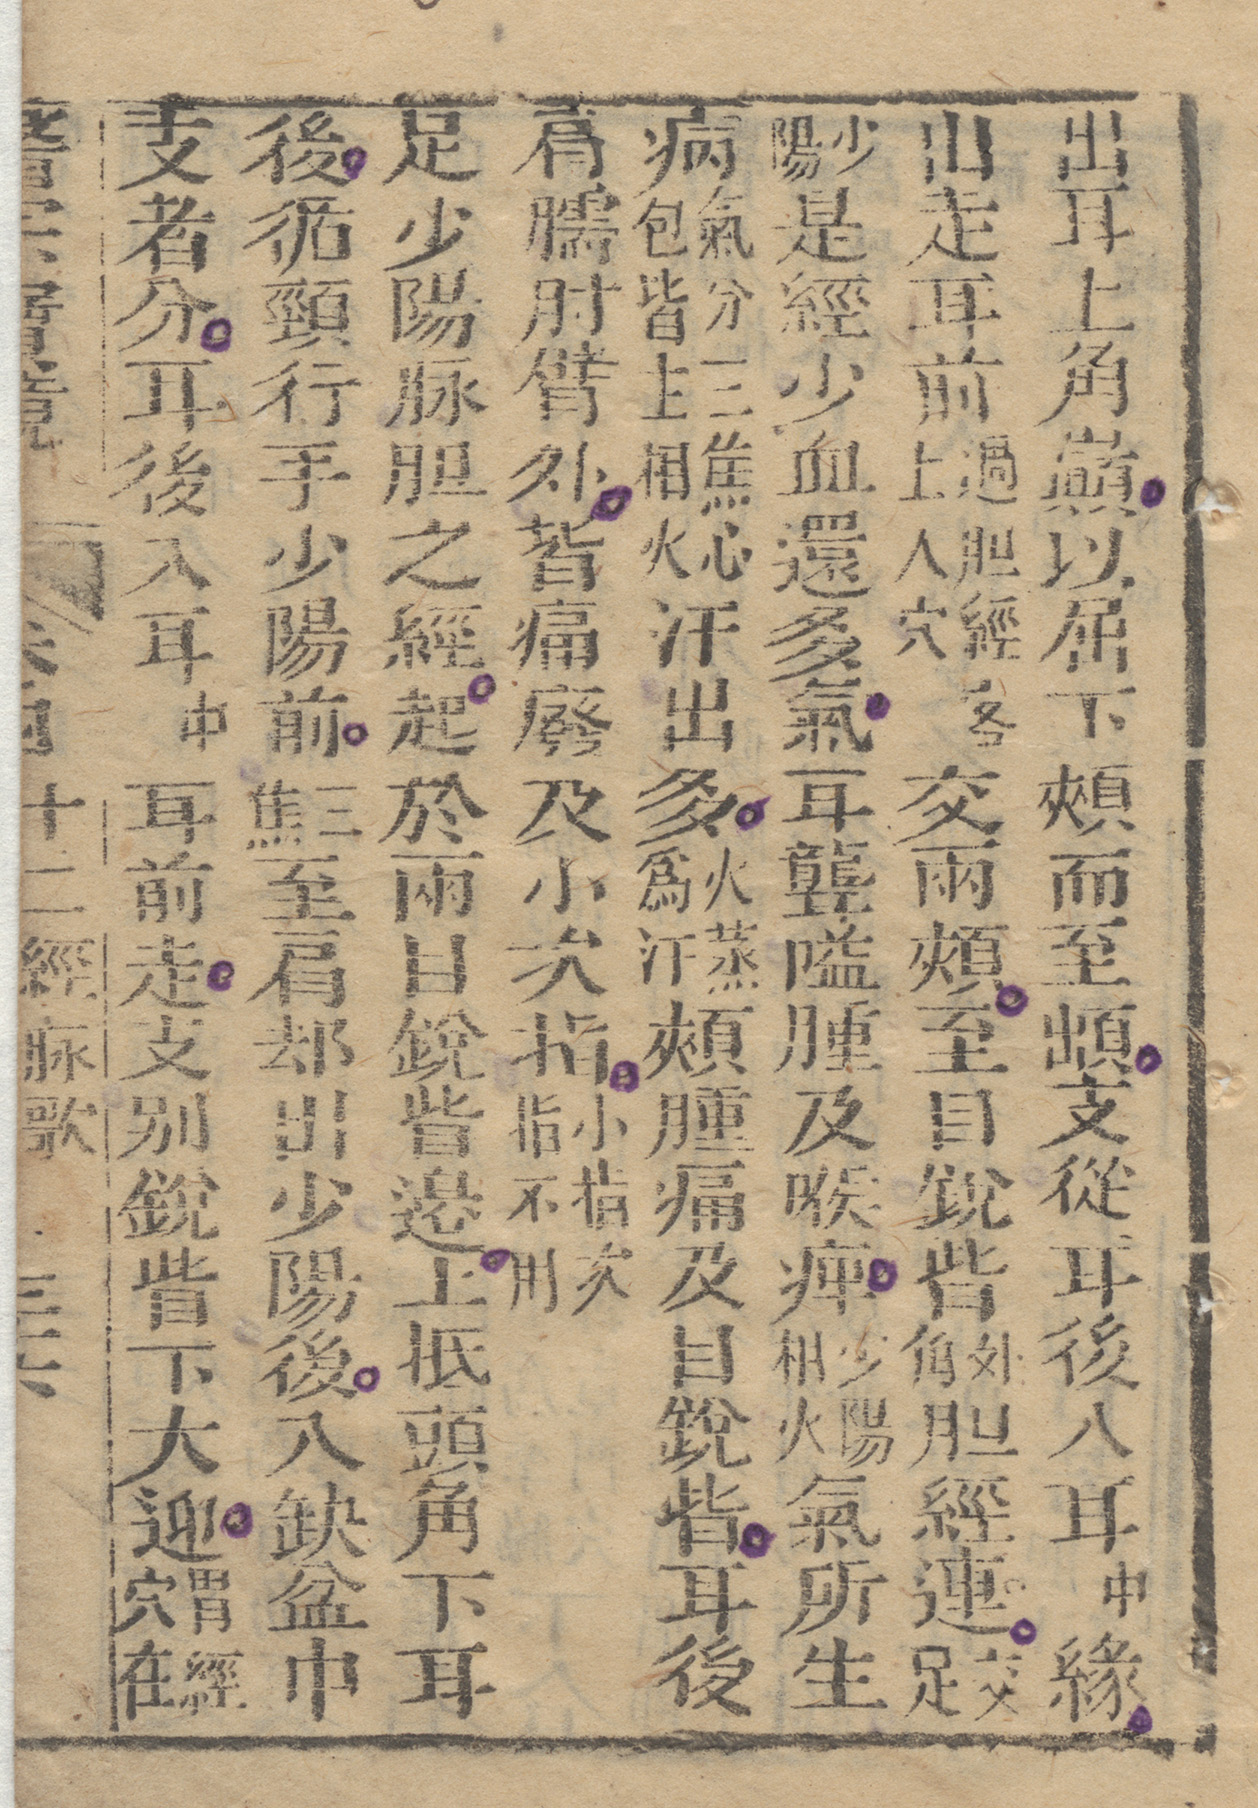 出耳上角巔以屈下頰而至䪼支從耳後入耳中緣
出走耳前過胆經客上人穴交兩頰至目銳眥外角胆經連交足
少陽是經少血還多氣耳聾嗌腫及喉痺少陽相火氣所生
病氣分三焦心包皆主相火汗出多火蒸爲汗頰腫痛及目銳眥耳後
肩臑肘臂外皆痛廢及小次指小指次指不用
足少陽脉胆之經起於兩目銳眥邊上抵頭角下耳
後循頸行手少陽前三焦至肩却出少陽後入缺盆巾
支者分耳後入耳中耳前走支別銳眥下大迎胃經穴在
十二經脉歌